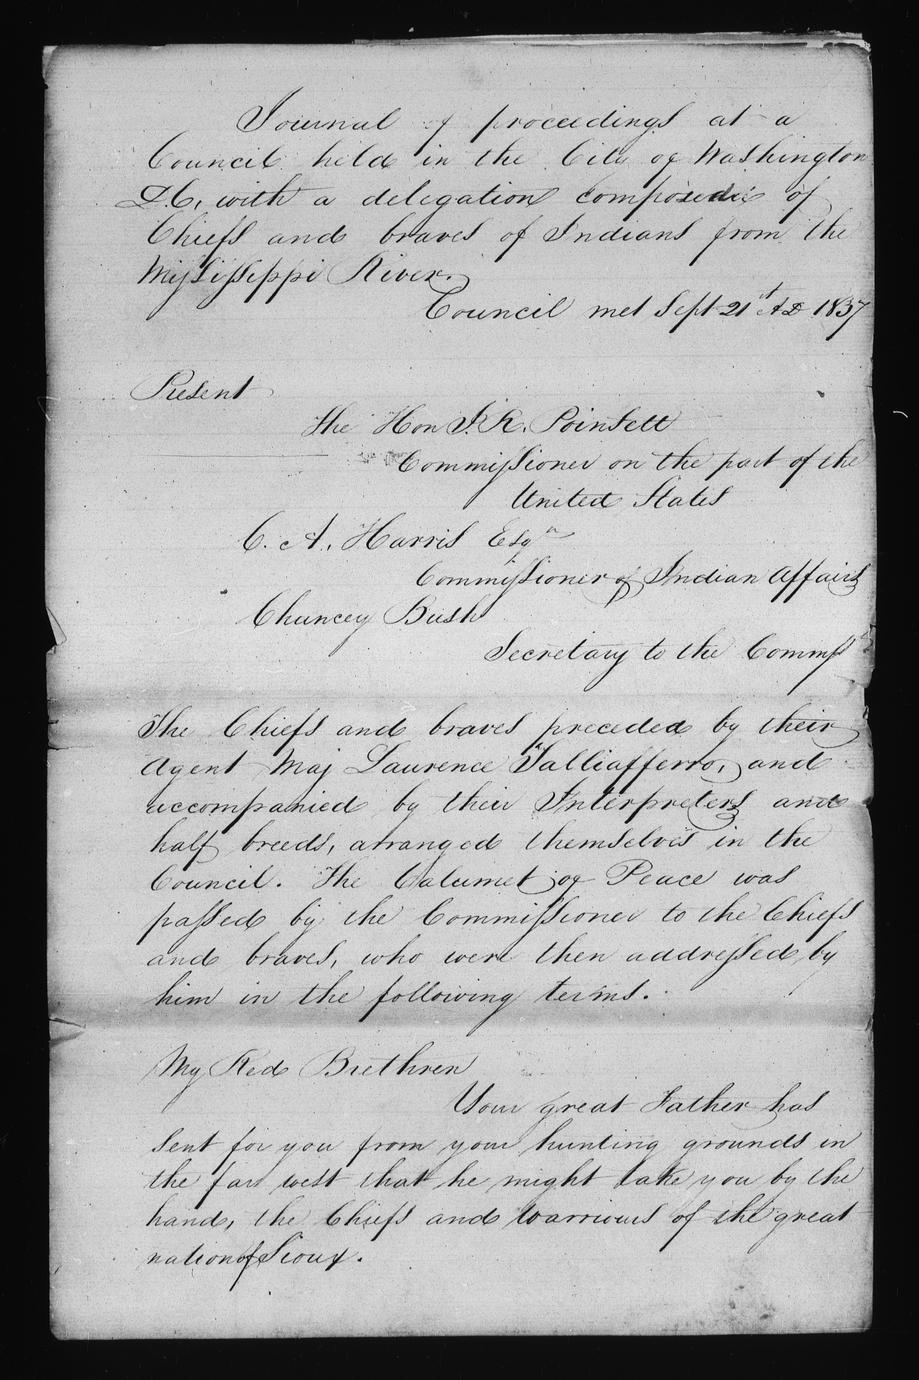 Journal of proceedings at a
Council held in the City of Washington
D.C. with a delegation composed of
Chiefs and braves of Indians from the
Mississippi River.
Council met Sept 21st A D 1837
Present
The Hon J. R. Poinsett
Commissioner on the part of the
United States
C. A. Harris Esqr
Commissioner of Indian Affairs
Chuncey Bush
Secretary to the Commss
The Chiefs and braves preceded by their
Agent Maj Laurence Talliafferro, and
accompanied by their Interpreters and
half breeds, arranged themselves in the
Council. The Calumet of Peace was
passed by the Commissioner to the Chiefs
and braves, who were then addressed by
him in the following terms.
My Red Brethren
Your great Father has
sent for you from your hunting grounds in
the far west that he might take you by the
hand, the Chiefs and warriours of the great
nation of Sioux.